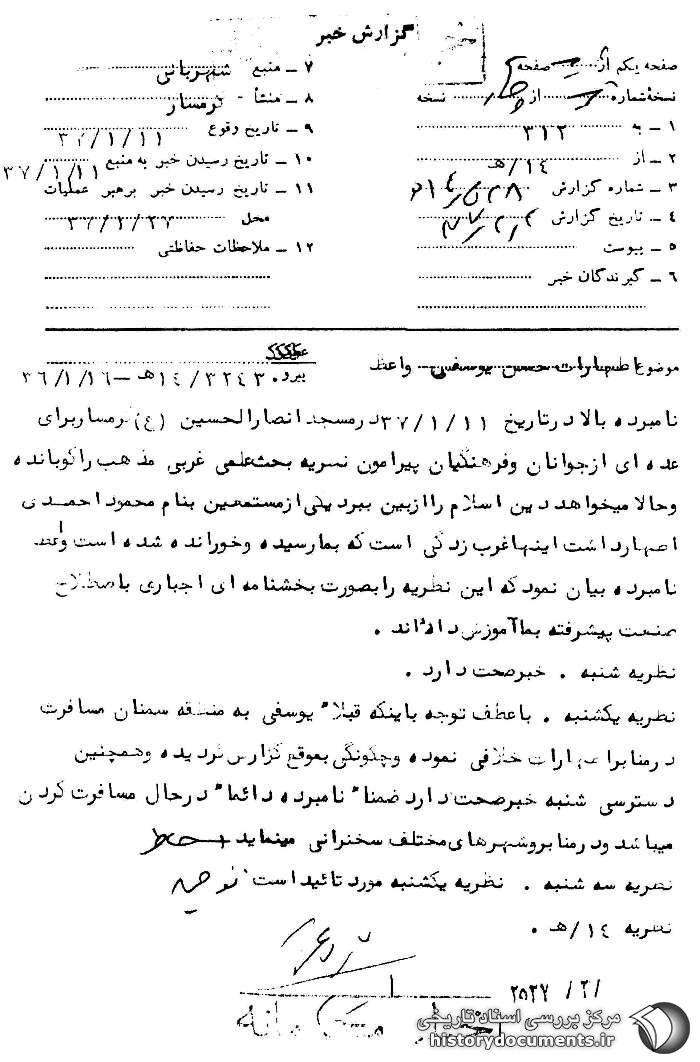 گزارش خبر
صفحه یکم از صفحه
نسخه شماره از نسخه
۱ ـ به ۳۱۲
۲ ـ از ۱۴/هـ
۳ ـ شماره گزارش
۴ ـ تاریخ گزارش
۵ ـ پیوست
۶ ـ گیرندگان خبر
۷ ـ منبع شهربانی
۸ ـ منشأ گرمسار
۹ ـ تاریخ وقوع ۳۷/۱/۱۱
۱۰ ـ تاریخ رسیدن خبر به منبع ۳۷/۱/۱۱
۱۱ ـ تاریخ رسیدن خبر برهبر عملیات
محل ۳۷/۱/۲۷
۱۲ ـ ملاحظات حفاظتی
موضوع اظهارات حسن یوسفی واعظ
پیرو ۳۲۴۳۰/۱۴هـ ـ ۳۶/۱/۱۶
نامبرده بالا در تاریخ ۳۷/۱/۱۱ در مسجد انصارالحسین (ع) گرمسار برای
عده ای از جوانان و فرهنگیان پیرامون نسریه بحث علمی غربی مذهب را کوبانده
و حالا میخواهد دین اسلام را از بین ببرد یکی از مستمعین بنام محمود احمدی
اظهار داشت اینها غرب زدگی است که بما رسیده و خورانده شده است واعظ
نامبرده بیان نمود که این نظریه را بصورت بخشنامه ای اجباری باصطلاح
صنعت پیشرفته بما آموزش داده‌اند .
نظریه شنبه . خبر صحت دارد .
نظریه یکشنبه . با عطف توجه باینکه قبلا" یوسفی به منطقه سمنان مسافرت
در منابر اظهارات خلافی نموده و چگونگی بموقع گزارش گردیده و همچنین
دسترسی شنبه خبر صحت دارد ضمنا" نامبرده دائما" در حال مسافرت کردن
میباشد و در منابر و شهرهای مختلف سخنرانی مینماید
نظریه سه شنبه . نظریه یکشنبه مورد تائید است
نظریه ۱۴/هـ .
۲۵۳۷
مرکز بررسی اسناد تاریخی
historydocuments.ir